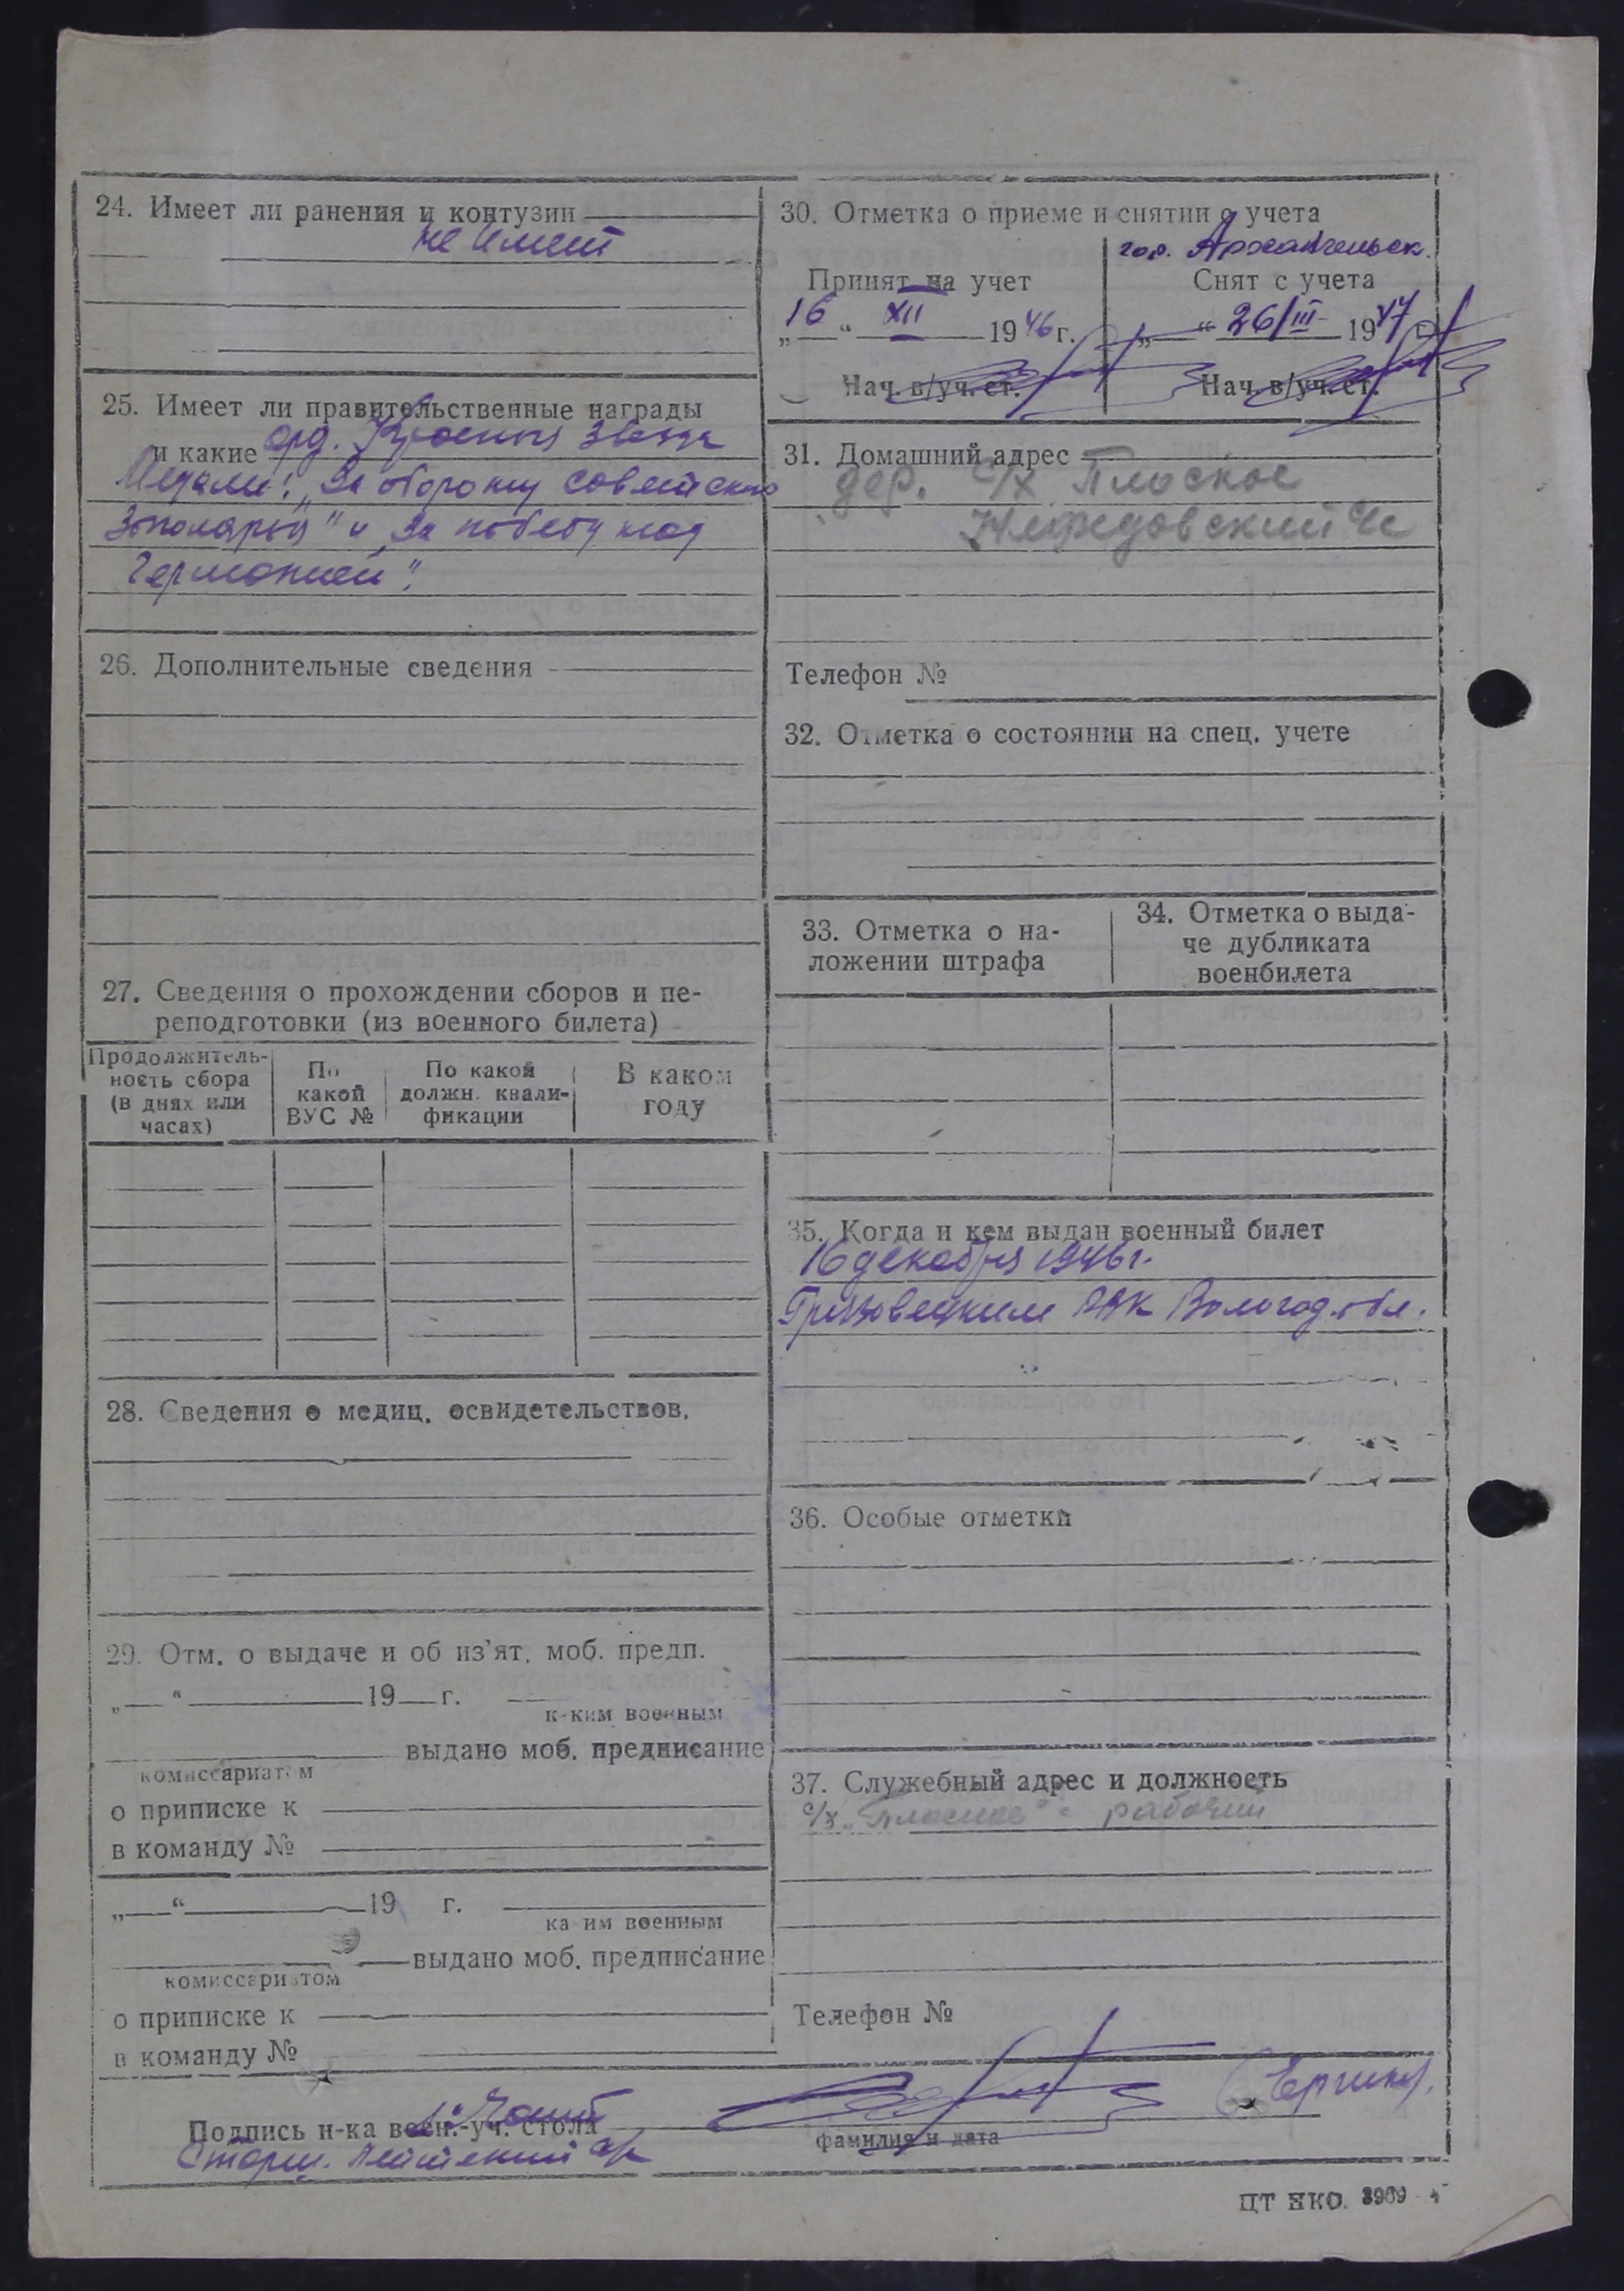 24. Имеет ли ранения и контузии
не имеет
25. Имеет ли правительственные награды
и какие орд. Красная звезда
Медали: „За оборону советского
Заполярья" и „За победу над
Германией".
26. Дополнительные сведения
27. Сведения о прохождении сборов и пе-
реподготовки (из военного билета)
Продолжитель-
ность сбора
(в днях или
часах)
По
какой
ВУС №
По какой
должн. квали-
фикации
В каком
году
28. Сведения о медиц. освидетельствов.
29. Отм. о выдаче и об из'ят. моб. предп.
„ “ 19 г.
каким военным
выдано моб. предписание
комиссариатом
о приписке к
в команду №
„ “ 19 г.
каким военным
выдано моб. предписание
комиссариатом
о приписке к
в команду №
30. Отметка о приеме и снятии с учета
Принят на учет
„16“ XII 1946 г.
Нач. в/уч. ст.
гор. Архангельск.
Снят с учета
„ “ 26/III 1947 г.
Нач. в/уч. ст.
31. Домашний адрес
дер. с/х Плоское
Телефон №
32. Отметка о состоянии на спец. учете
33. Отметка о на-
ложении штрафа
34. Отметка о выда-
че дубликата
военбилета
35. Когда и кем выдан военный билет
16 декабря 1946 г.
Грязовецким РВК Вологод. обл.
36. Особые отметки
37. Служебный адрес и должность
с/х „Плоское" - рабочий
Телефон №
Подпись н-ка воен.-уч. стола
Старш. лейтенант а/с
фамилия и дата
ЦТ НКО. 3909